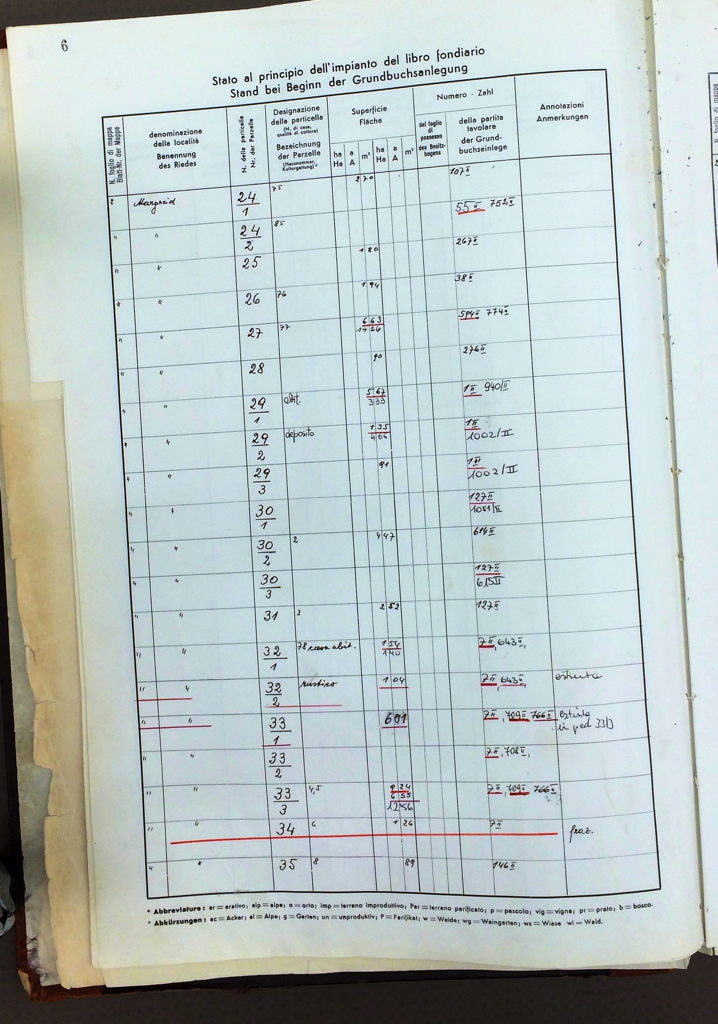 6
Stato al principio dell'impianto del libro fondiario
Stand bei Beginn der Grundbuchsanlegung
N. foglio di mappa
Blatt-Nr. der Mappe
denominazione
della località
Benennung
des Riedes
N. della particella
Nr. der Parzelle
Designazione
della particella
(N. di casa, qualità di coltura)
Bezeichnung
der Parzelle
(Hausnummer, Kulturgattung)*
Superficie
Fläche
ha
Ha
a
A
m²
ha
Ha
a
A
m²
Numero - Zahl
del foglio
di
possesso
des Besitz-
bogens
della partita
tavolare
der Grund-
buchseinlage
Annotazioni
Anmerkungen
2 Margreid 24/1 75 2 70 107 II
" " 24/2 85 55 II 754 II
" " 25 1 80 267 II
" " 26 76 1 94 38 II
" " 27 77 6 63 594 II 774 II
14 26
" " 28 90 276 II
" " 29/1 abit. 5 67 1 II 940/II
333
" " 29/2 deposito 1 35 1 II
466 1002/II
" " 29/3 91 1 II
1002/II
" " 30/1 127 II
1051/II
" " 30/2 2 4 47 614 II
" " 30/3 127 II
615 II
" " 31 3 2 52 127 II
" " 32/1 78 casa abit. 1 54 7 II, 643 II,
1 40
" " 32/2 rustico 1 04 7 II, 643 II, estinta
" " 33/1 601 7 II, 709 II 766 II estinta
in ped 33/3
" " 33/2 7 II, 708 II,
" " 33/3 4,5 9 24 7 II, 709 II 766 II
6 55
1256
" " 34 6 1 26 7 II fraz.
" " 35 8 89 146 II
* Abbreviature: ar = arativo, alp = alpe; o = orto; imp = terreno improduttivo; Par = terreno parificato; p = pascolo; vig = vigna; pr = prato; b = bosco.
* Abkürzungen: ac = Acker; al = Alpe; g = Garten; un = unproduktiv; P = Parifikat; w = Weide; wg = Weingarten; ws = Wiese wl = Wald.